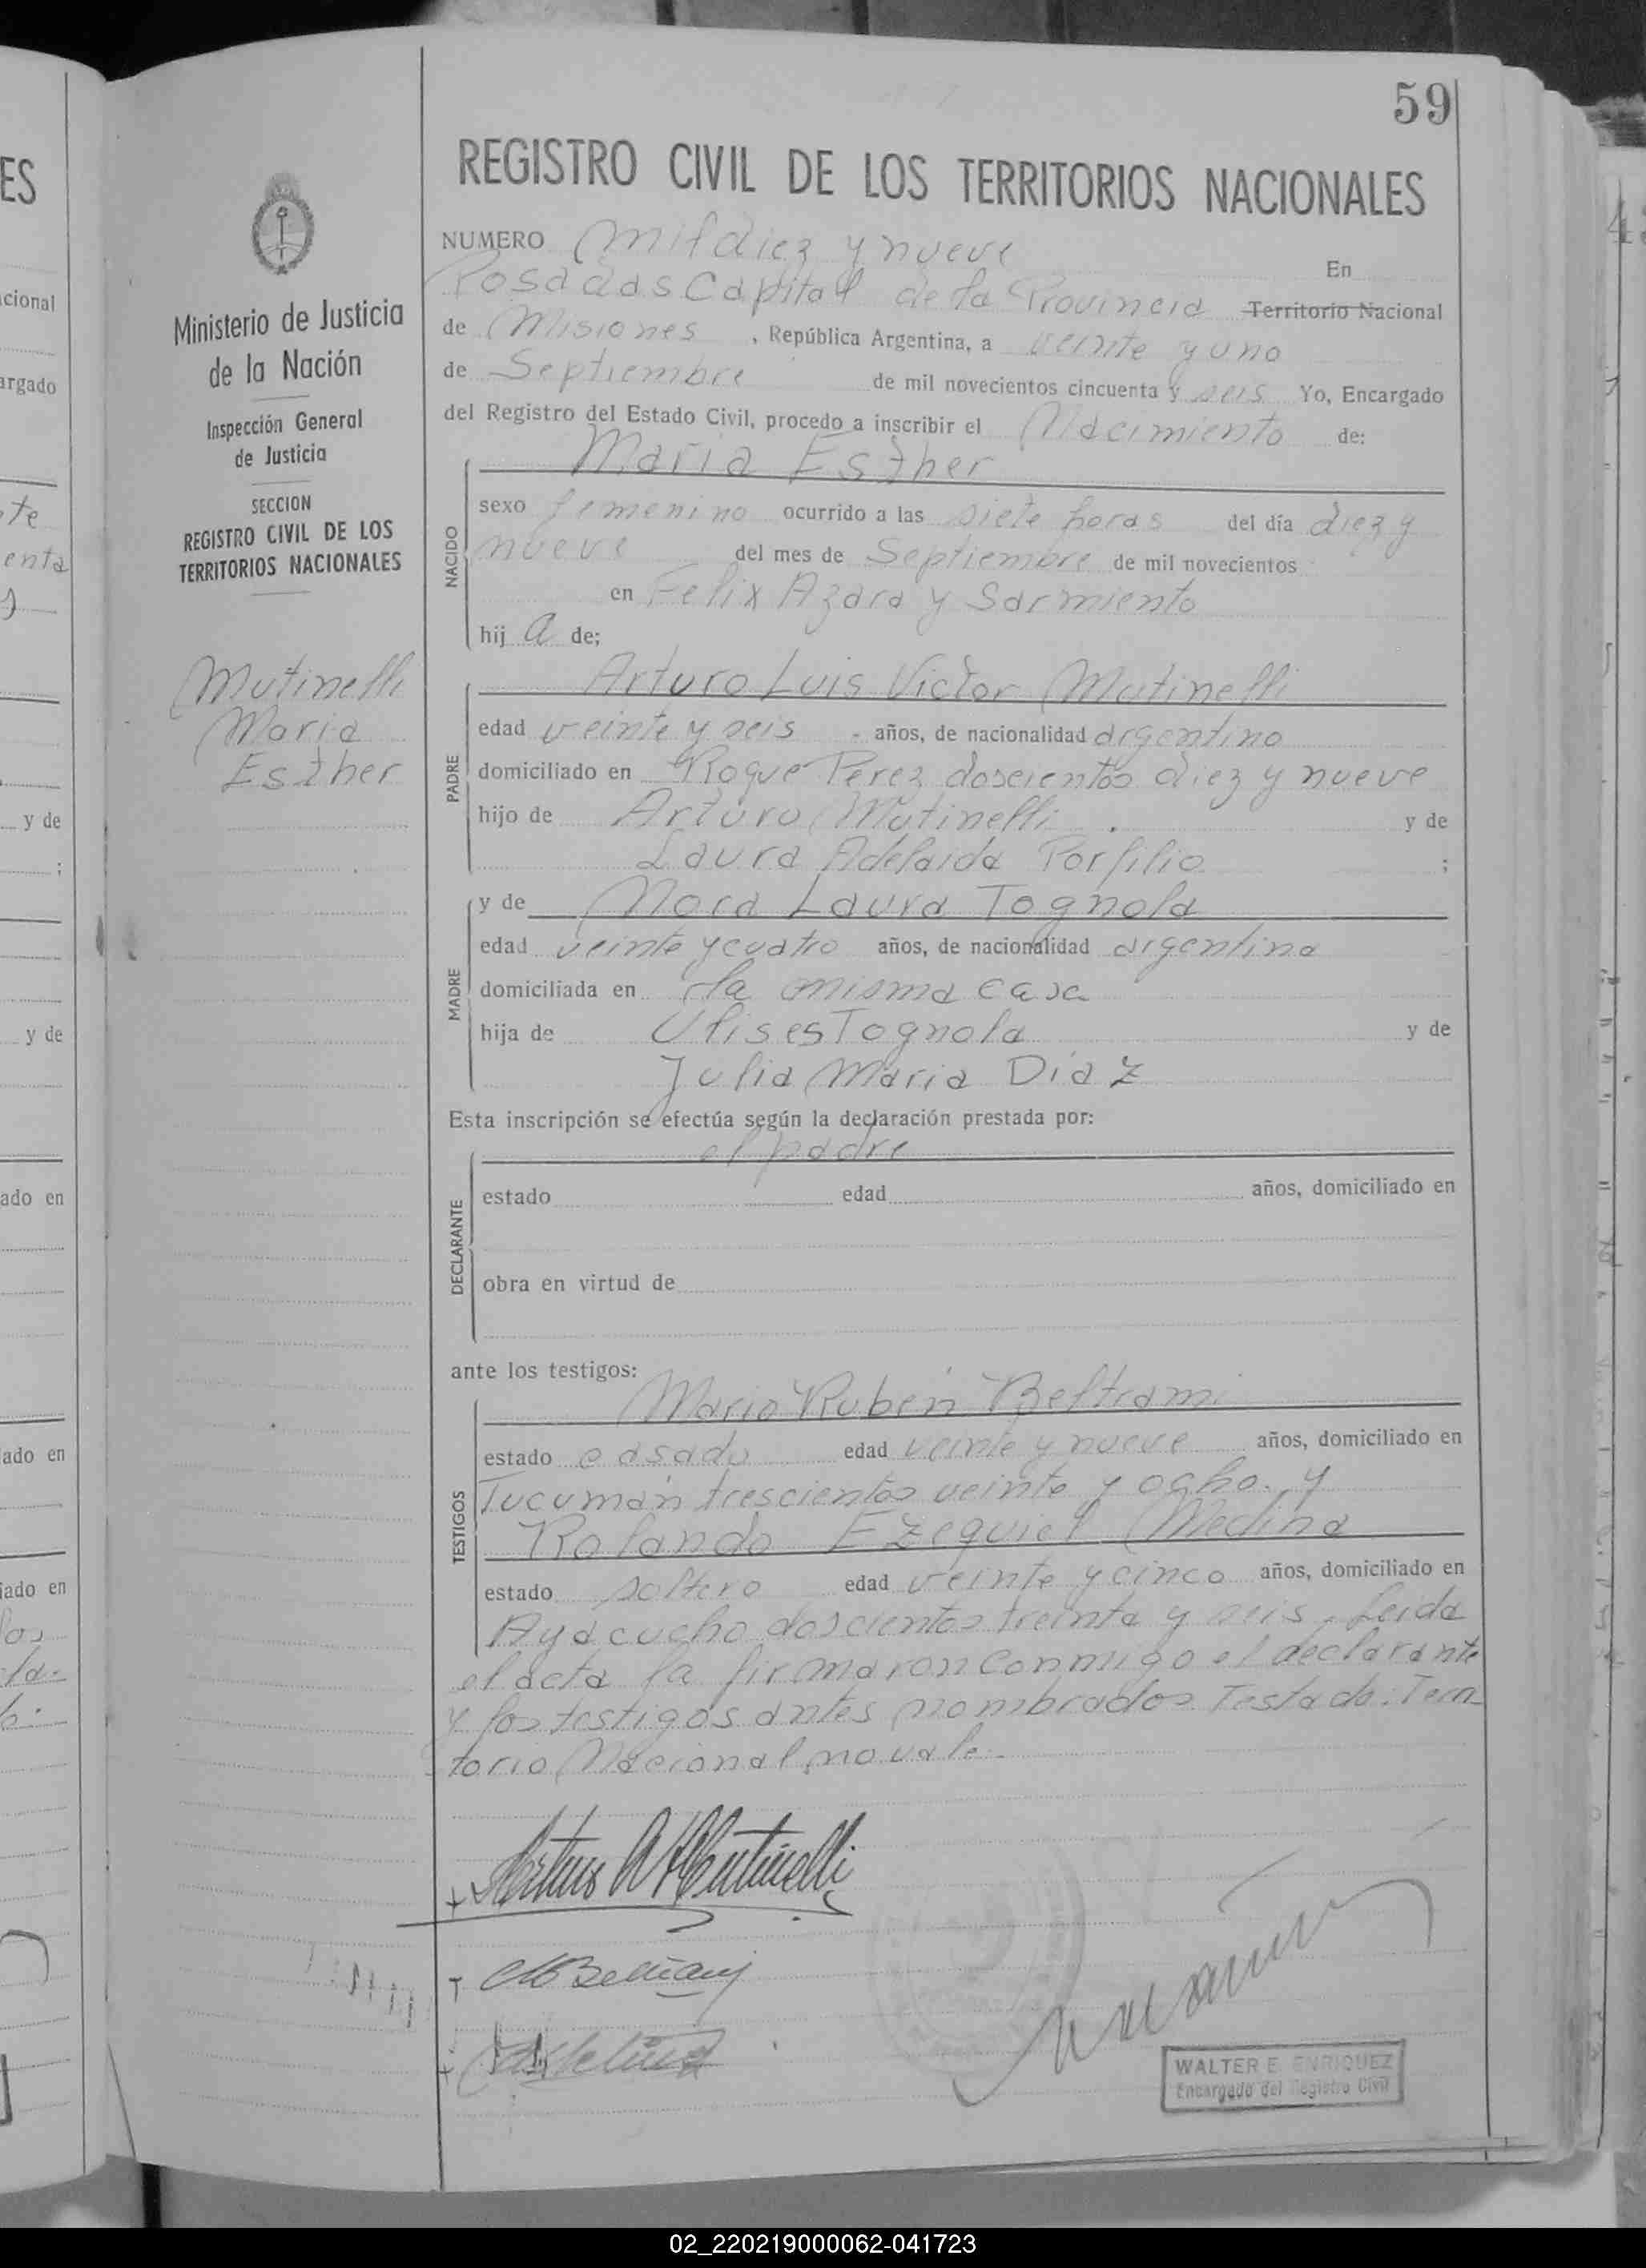 59
REGISTRO CIVIL DE LOS TERRITORIOS NACIONALES
NUMERO Mil diez y nueve
En
Posadas Capital de la Provincia Territorio Nacional
de Misiones, República Argentina, a veinte y uno
de Septiembre de mil novecientos cincuenta y seis Yo, Encargado
del Registro del Estado Civil, procedo a inscribir el Nacimiento de:
Maria Esther
NACIDO
sexo femenino ocurrido a las siete horas del día diez y
nueve del mes de Septiembre de mil novecientos
en Felix Azara y Sarmiento
hij a de;
Arturo Luis Victor Mutinelli
PADRE
edad veinte y seis años, de nacionalidad argentino
domiciliado en Roque Perez doscientos diez y nueve
hijo de Arturo Mutinelli y de
Laura Adelaida Porfilio ;
MADRE
y de Nora Laura Tognola
edad veinte y cuatro años, de nacionalidad argentina
domiciliada en la misma casa
hija de Ulises Tognola y de
Julia Maria Díaz
Esta inscripción se efectúa según la declaración prestada por:
el padre
DECLARANTE
estado edad años, domiciliado en
obra en virtud de
ante los testigos:
Mario Rubén Beltrami
TESTIGOS
estado casado edad veinte y nueve años, domiciliado en
Tucumán trescientos veinte y ocho. y
Rolando Ezequiel Medina
estado soltero edad veinte y cinco años, domiciliado en
Ayacucho doscientos treinta y seis. Leida
el acta la firmaron conmigo el declarante
y los testigos antes nombrados Testado: Terri
torio Nacional, no vale.
WALTER E. ENRIQUEZ
Encargado del Registro Civil
Ministerio de Justicia
de la Nación
Inspección General
de Justicia
SECCION
REGISTRO CIVIL DE LOS
TERRITORIOS NACIONALES
Mutinelli
Maria
Esther
ES
cional
argado
te
enta
y de
;
y de
ado en
lado en
iado en
02_220219000062-041723